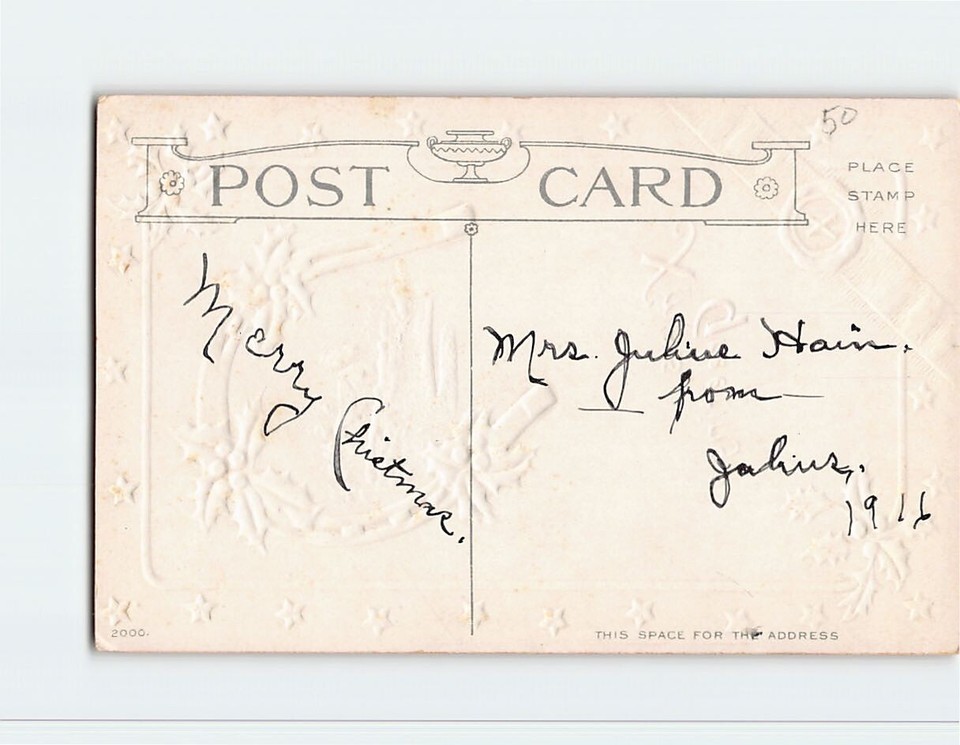 50
POST CARD
PLACE
STAMP
HERE
Merry
Christmas.
Mrs. Julius Hain.
from
Julius,
1916
2000.
THIS SPACE FOR THE ADDRESS